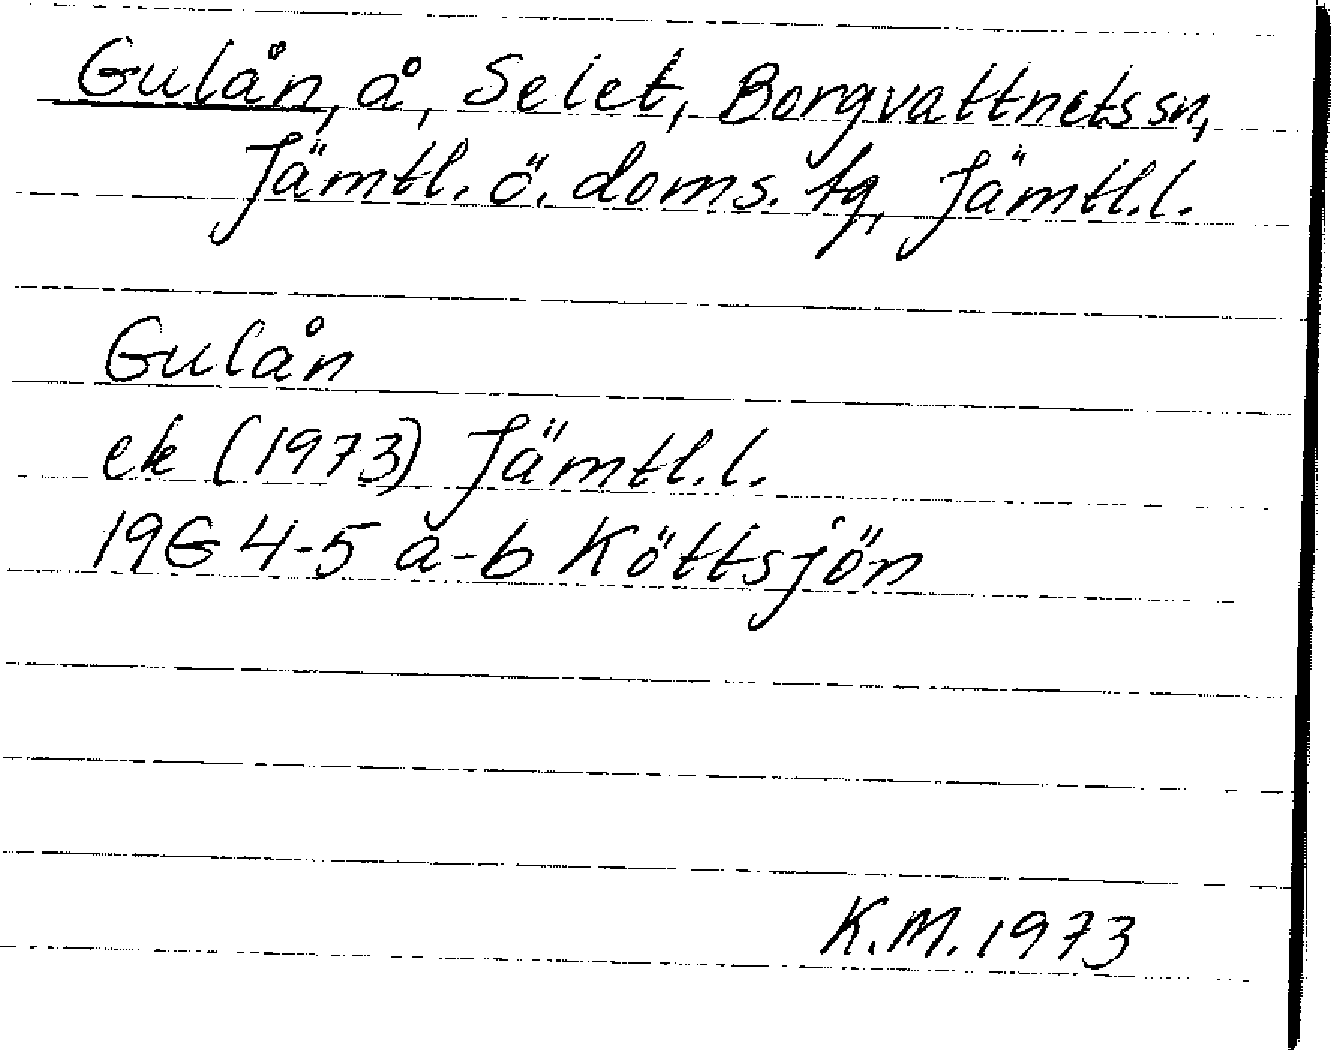 Gulån, å, Selet, Borgvattnets sn,
Jämtl. ö. doms. tg, Jämtl.l.
Gulån
ek (1973) Jämtl.l.
19G 4-5 a-b Köttsjön
K.M. 1973